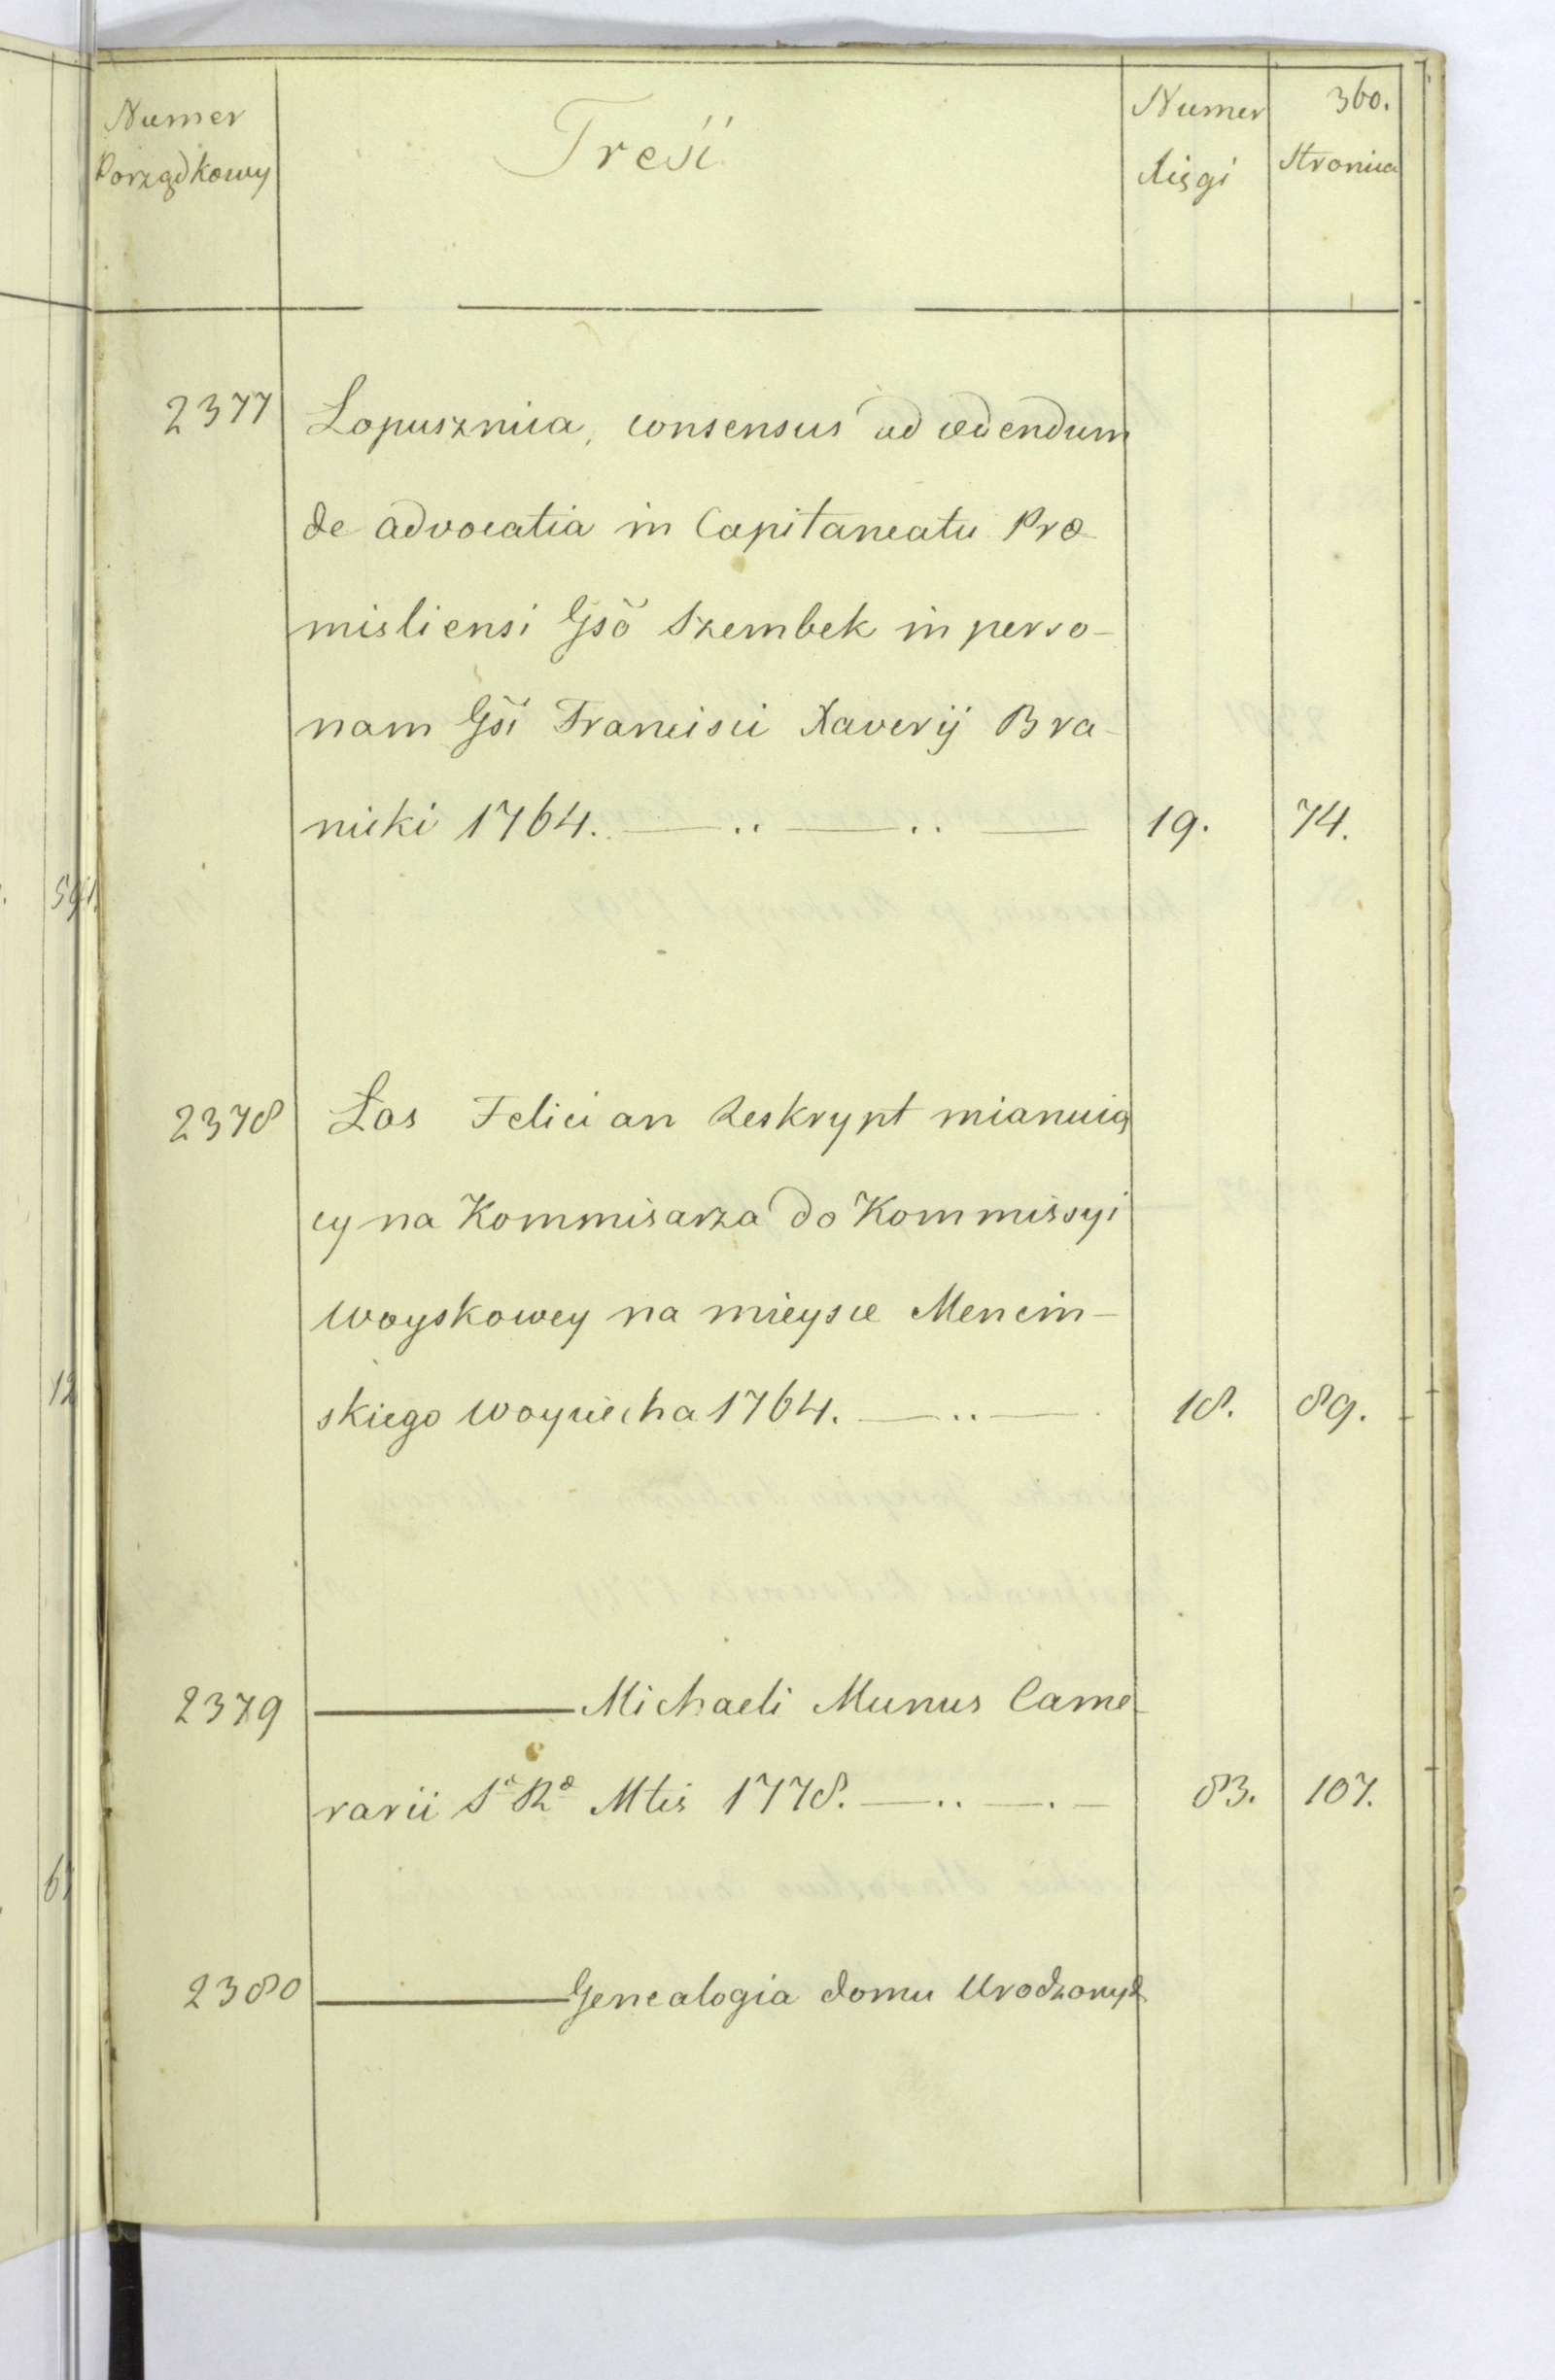 360.
Numer Porządkowy Treść Numer Xięgi Stronica
2377 Łopusznica, consensus ad cedendum
de advocatia in Capitaneatu Præ
misliensi Gsō Szembek in perso-
nam Gsi Francisci Xaverij Bra-
nicki 1764. 19. 74.
2378 Łos Felician Reskrypt mianuią
cy na Kommisarza do Kommissyi
Woyskowey na mieysce Mencin-
skiego Woyciecha 1764. 18. 89.
2379 Michaeli Munus Came-
rarii Sæ Ræ Mtis 1778. 83. 107.
2380 Genealogia domu Urodzonych